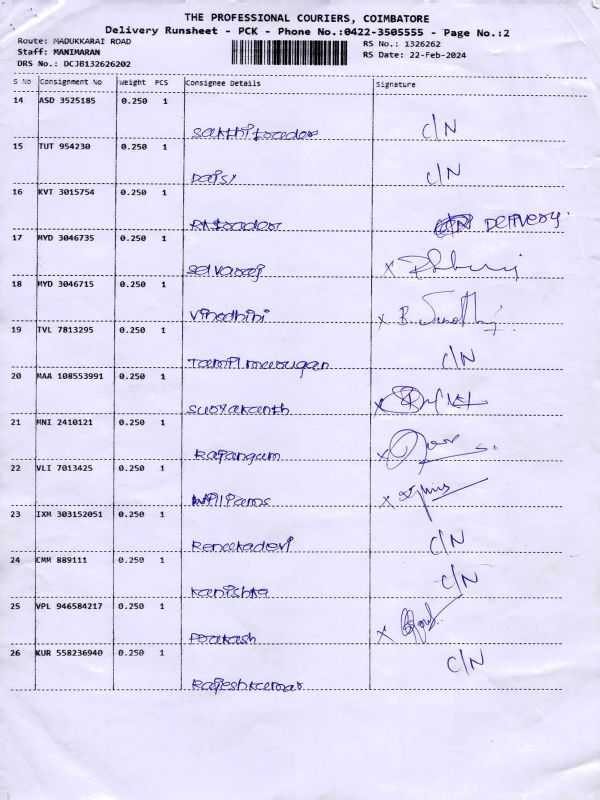 THE PROFESSIONAL COURIERS, COIMBATORE
Delivery Runsheet - PCK - Phone No.:0422-3505555 - Page No.:2
Route: MADUKKARAI ROAD
RS No.: 1326262
Staff: MANIMARAN
RS Date: 22-Feb-2024
DRS No.: DCJB132626202
S No Consignment No Weight PCS Consignee Details Signature
14 ASD 3525185 0.250 1
Sakthi traders C/N
15 TUT 954230 0.250 1
Daisy C/N
16 KVT 3015754 0.250 1
RK traders DELIVERY.
17 MYD 3046735 0.250 1
Selvaraj
18 MYD 3046715 0.250 1
Vinodhini
19 TVL 7813295 0.250 1
Tamil murugan C/N
20 MAA 108553991 0.250 1
Suryakanth
21 MNI 2410121 0.250 1
Rajangam
22 VLI 7013425 0.250 1
Williams
23 IXM 303152051 0.250 1
Renukadevi C/N
24 CMM 889111 0.250 1
Kanishka C/N
25 VPL 946584217 0.250 1
Prakash
26 KUR 558236940 0.250 1
Rajeshkumar C/N